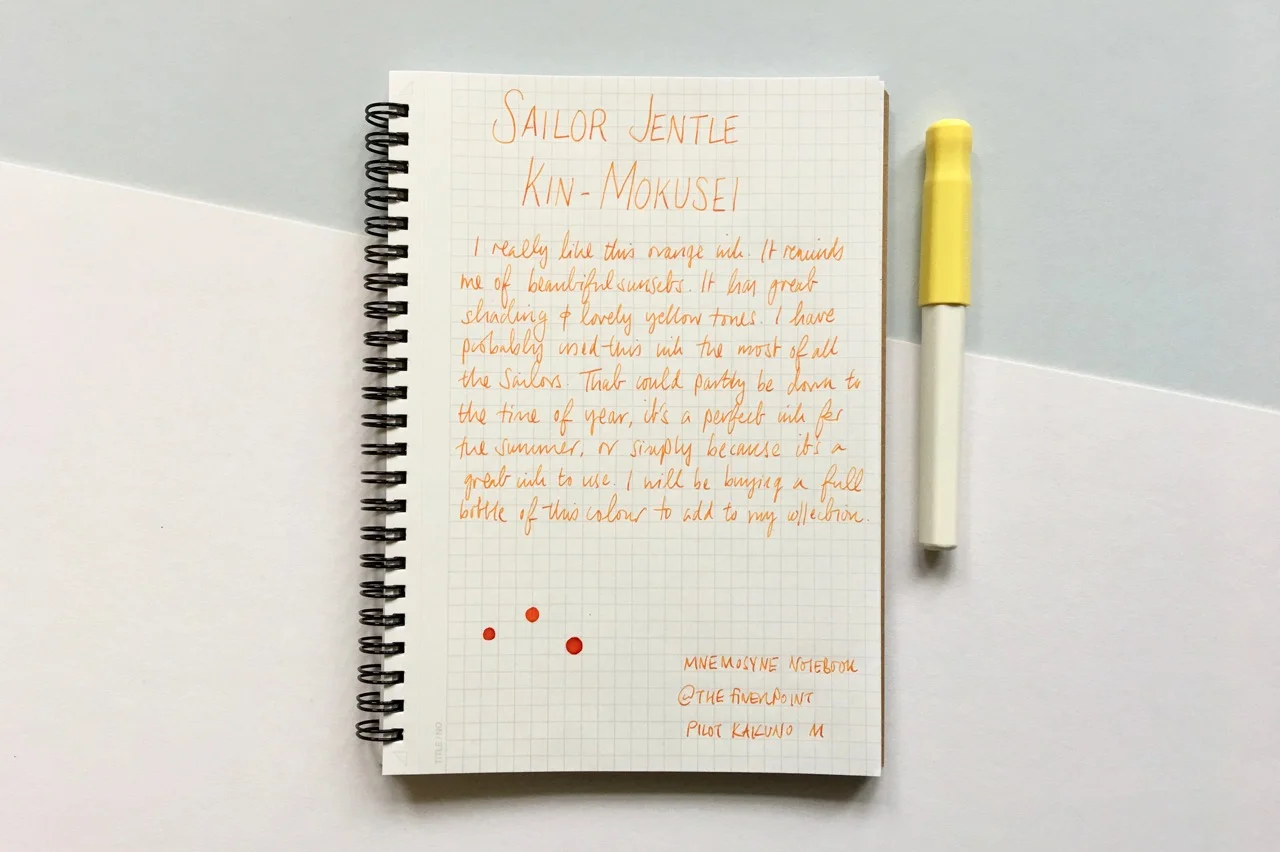 SAILOR JENTLE
KIN-MOKUSEI
I really like this orange ink. It reminds
me of beautiful sunsets. It has great
shading & lovely yellow tones. I have
probably used this ink the most of all
the Sailors. That could partly be down to
the time of year, it's a perfect ink for
the summer, or simply because it's a
great ink to use. I will be buying a full
bottle of this colour to add to my collection.
MNEMOSYNE NOTEBOOK
@THEFINERPOINT
PILOT KAKUNO M
TITLE / NO